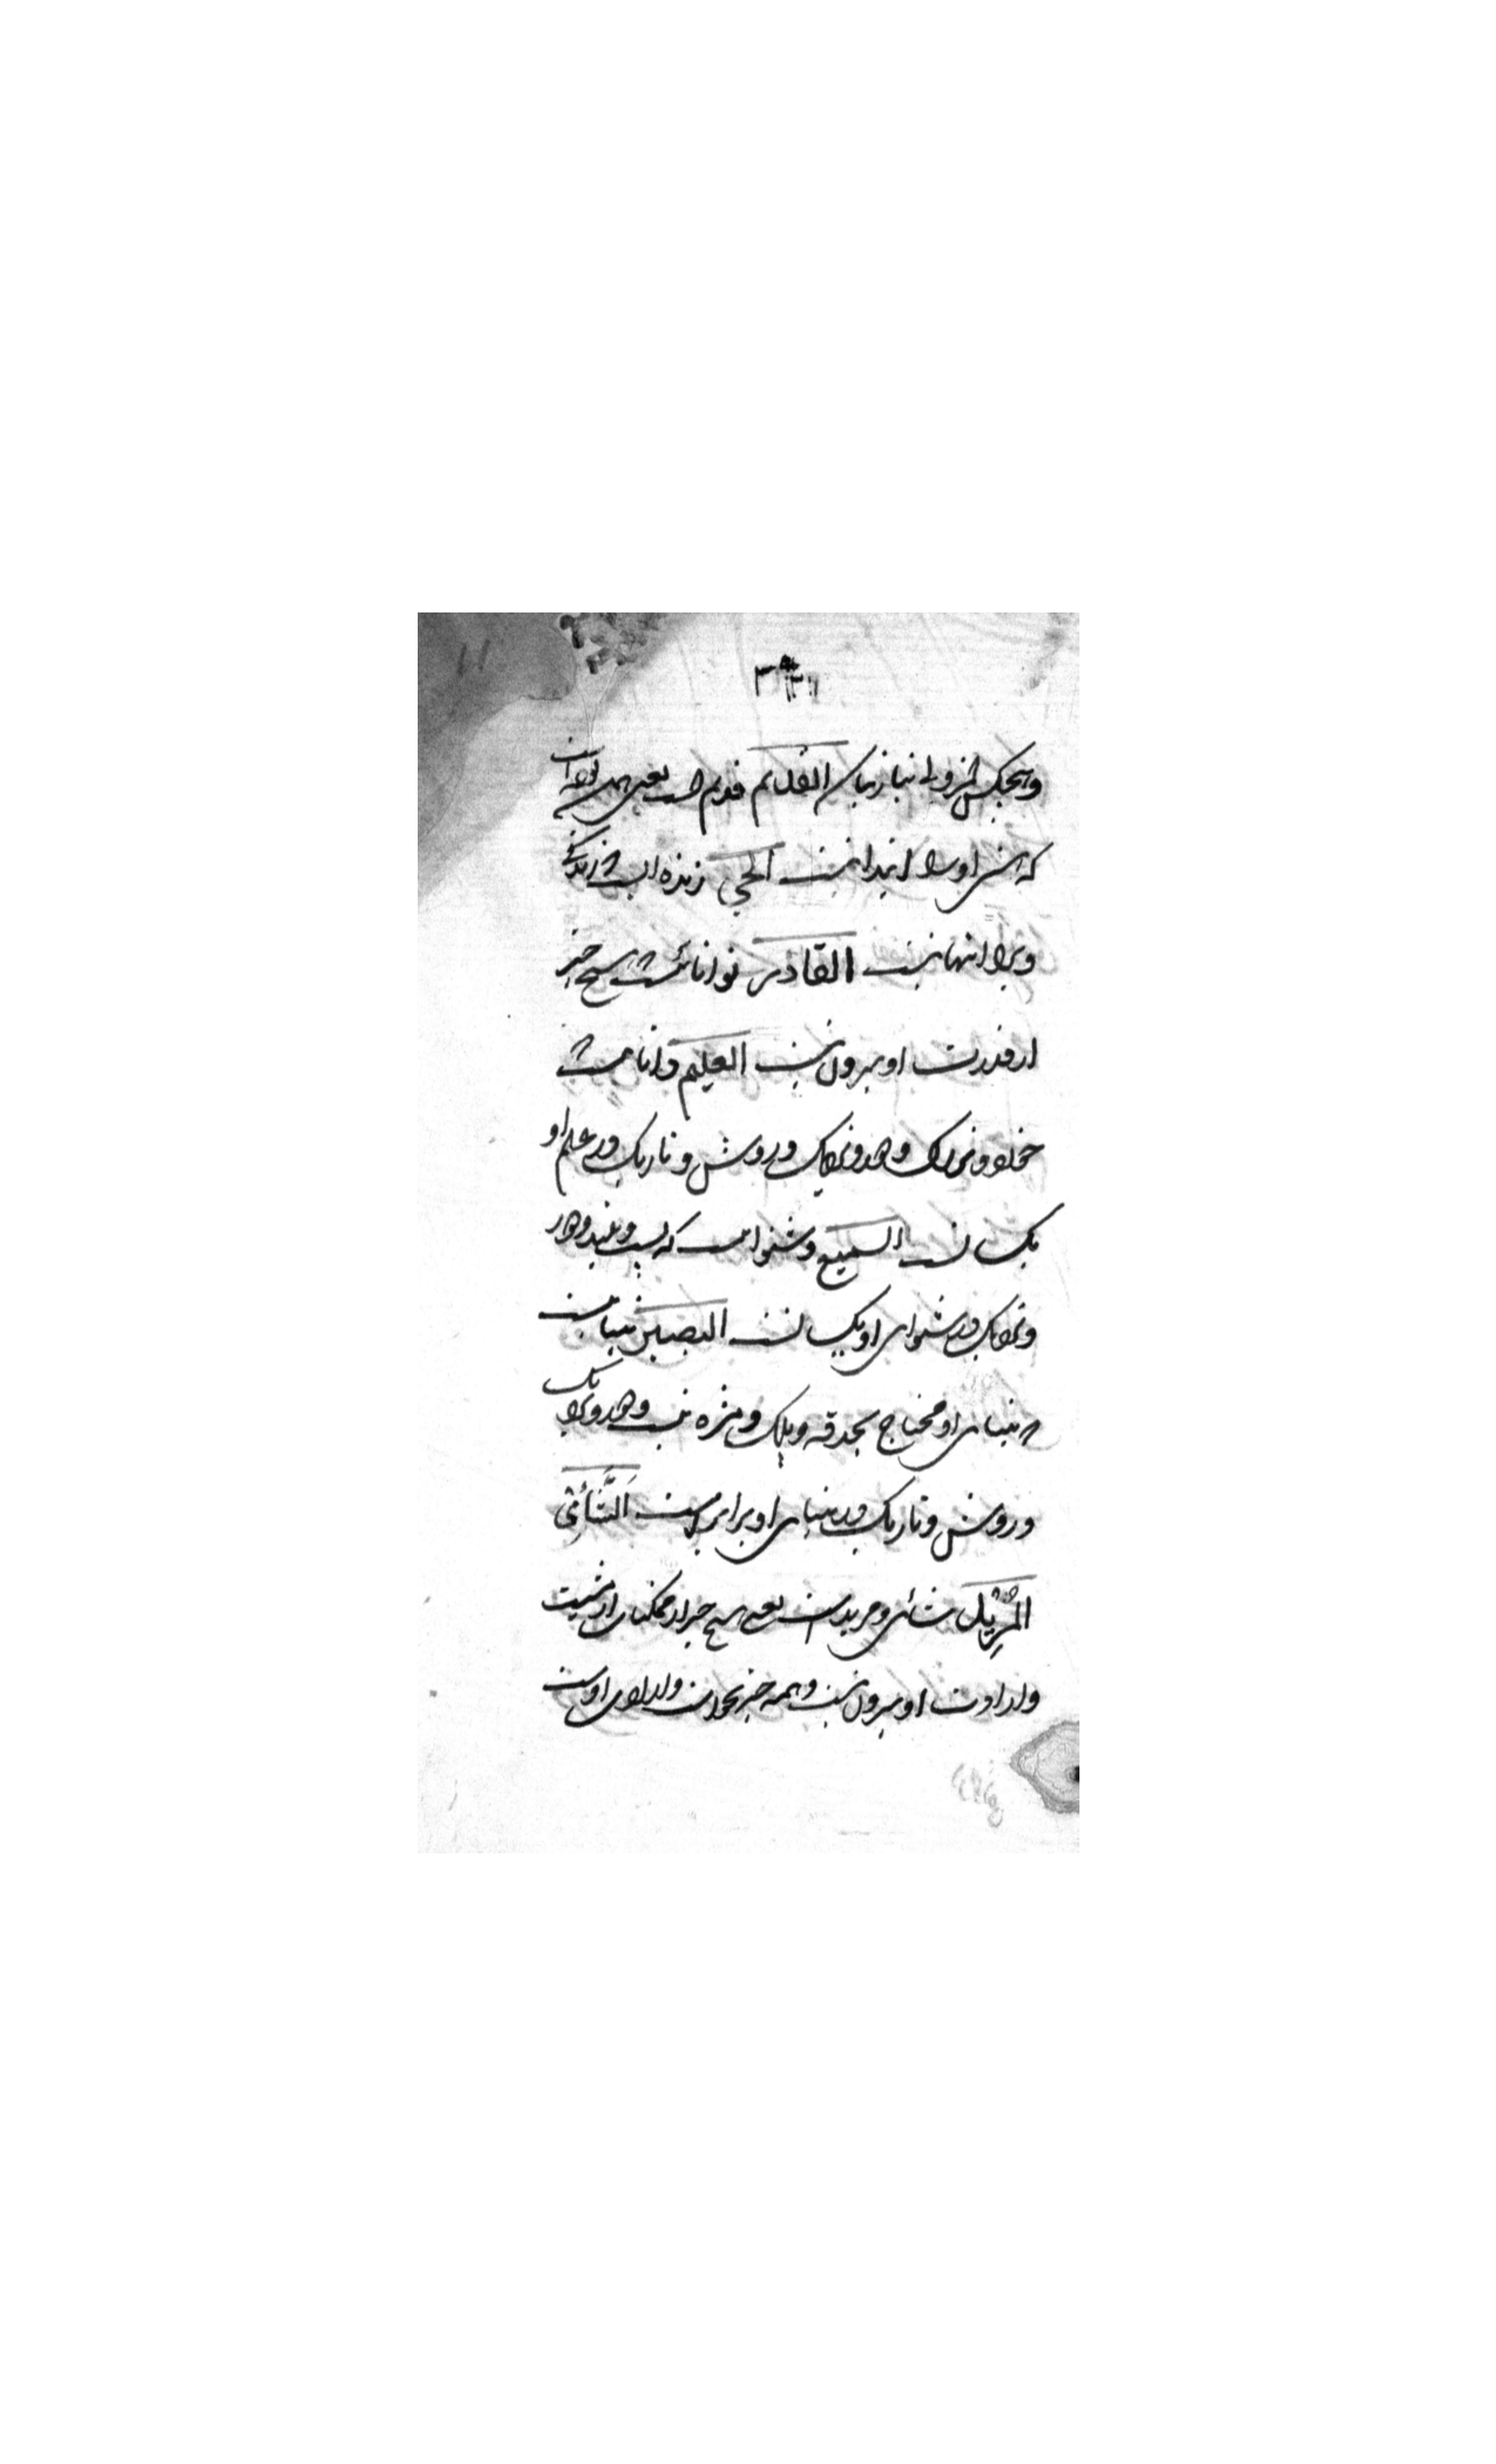 وهیچکس از وی بی نیاز نباشد القدیم قدیم است یعنی
که هستی اورا ابتدا نیست الحی زنده است زندگی
ویرا انتها نیست القادر توانا است هیچ چیز
از قدرت او بیرون نیست العلیم دانا است
خورد و بزرگ و دور و نزدیک و روشن و تاریک در علم او
یکسانست السمیع و شنوا است که پست و بلند و دور
و نزدیک در شنوای او یکسانست البصیر بینا است
بینای او محتاج بحدقه و پلک و مژه نیست و دور و نزدیک
و روشن و تاریک در بینای او برابر است الشائی
المرید شائی و مرید است یعنی هیچ چیز از ممکنات از مشیت
و ارادت او بیرون نیست و همه چیز بخواست و ارادی اوست